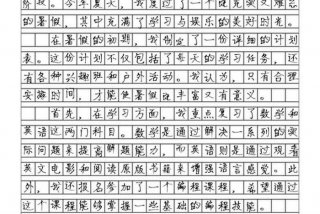 阶段。今年夏天，我度过了一个既充实又难忘
的暑假，其中充满了学习与娱乐的美好时光。
在暑假的初期，我制定了一份详细的计划
表。这份计划不仅包括了每天的学习任务，还
有各种兴趣班和户外活动。我认为，只有合理
安排时间，才能使暑假丰富又有意义。
首先，在学习方面，我重点复习了数学和
英语这两门科目。数学是通过解决一系列的实
际问题来提高解题能力，而英语则是通过观看
英文电影和阅读原版书籍来增强语言感觉。此
外，我还报名参加了一个编程课程，希望通过
这个课程能够掌握一些基础的编程技能。